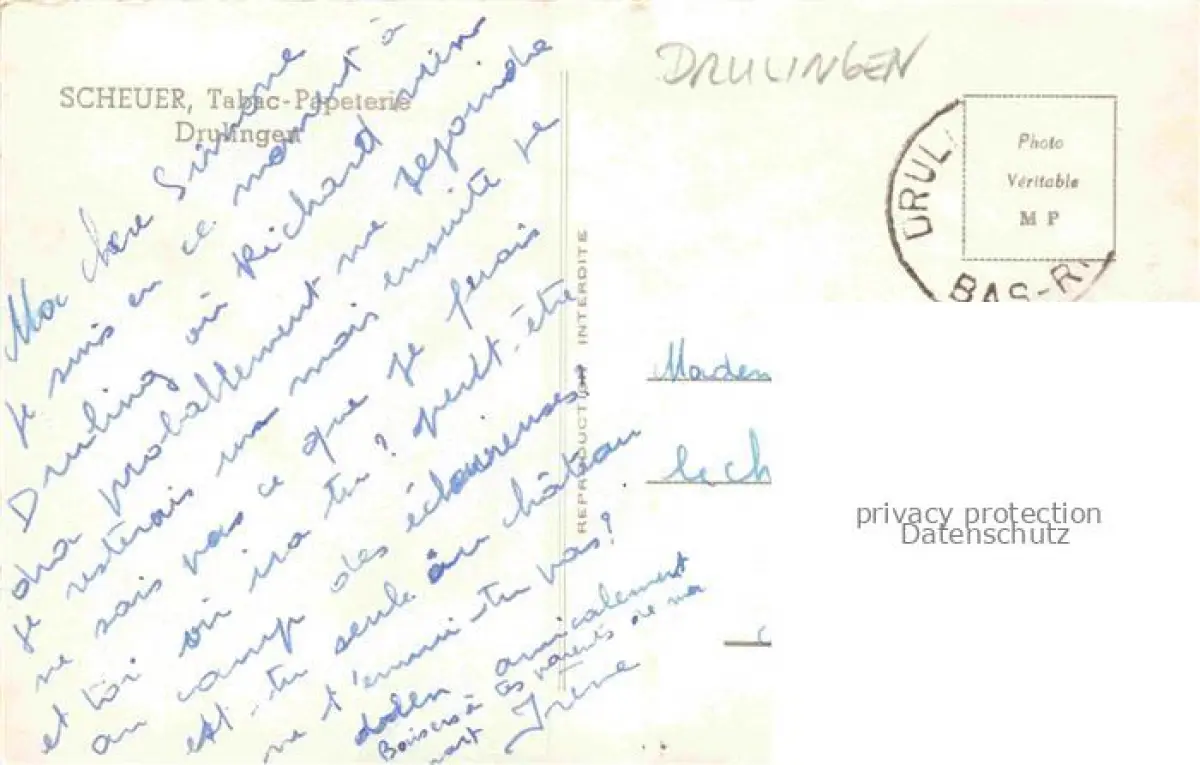 SCHEUER, Tabac-Papeterie
Drulingen
Ma chère Simone
Je suis en ce moment à
Druling où Richard vien
dra probablement me rejoindre
je resterais un mois ensuite je
ne sais pas ce que je ferais
et toi où ira tu? peut-être
au camp des éclaireuses?
est-tu seule au château
ne t'ennui-tu pas?
amicalement
Baisers à tes parents de ma
part
Irène
REPRODUCTION INTERDITE
DRULINGEN
DRUL
BAS-R
Photo
Véritable
M P
Madem
le ch
privacy protection
Datenschutz